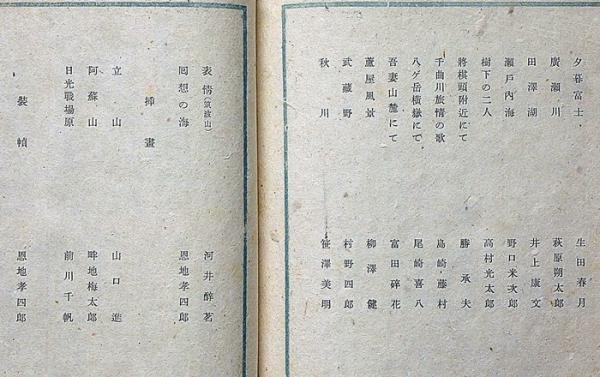 夕暮富士 生田春月
廣瀬川 萩原朔太郎
田澤湖 井上康文
瀬戸內海 野口米次郎
樹下の二人 高村光太郎
將棋頭附近にて 勝承夫
千曲川旅情の歌 島崎藤村
八ゲ岳橫嶽にて 尾崎喜八
吾妻山麓にて 富田碎花
蘆屋風景 柳澤健
武藏野 村野四郎
秋川 笹澤美明
表情(筑波山) 河井醉茗
囘想の海 恩地孝四郎
揷畫
立山 山口進
阿蘇山 畔地梅太郎
日光戰場原 前川千帆
裝幀 恩地孝四郎